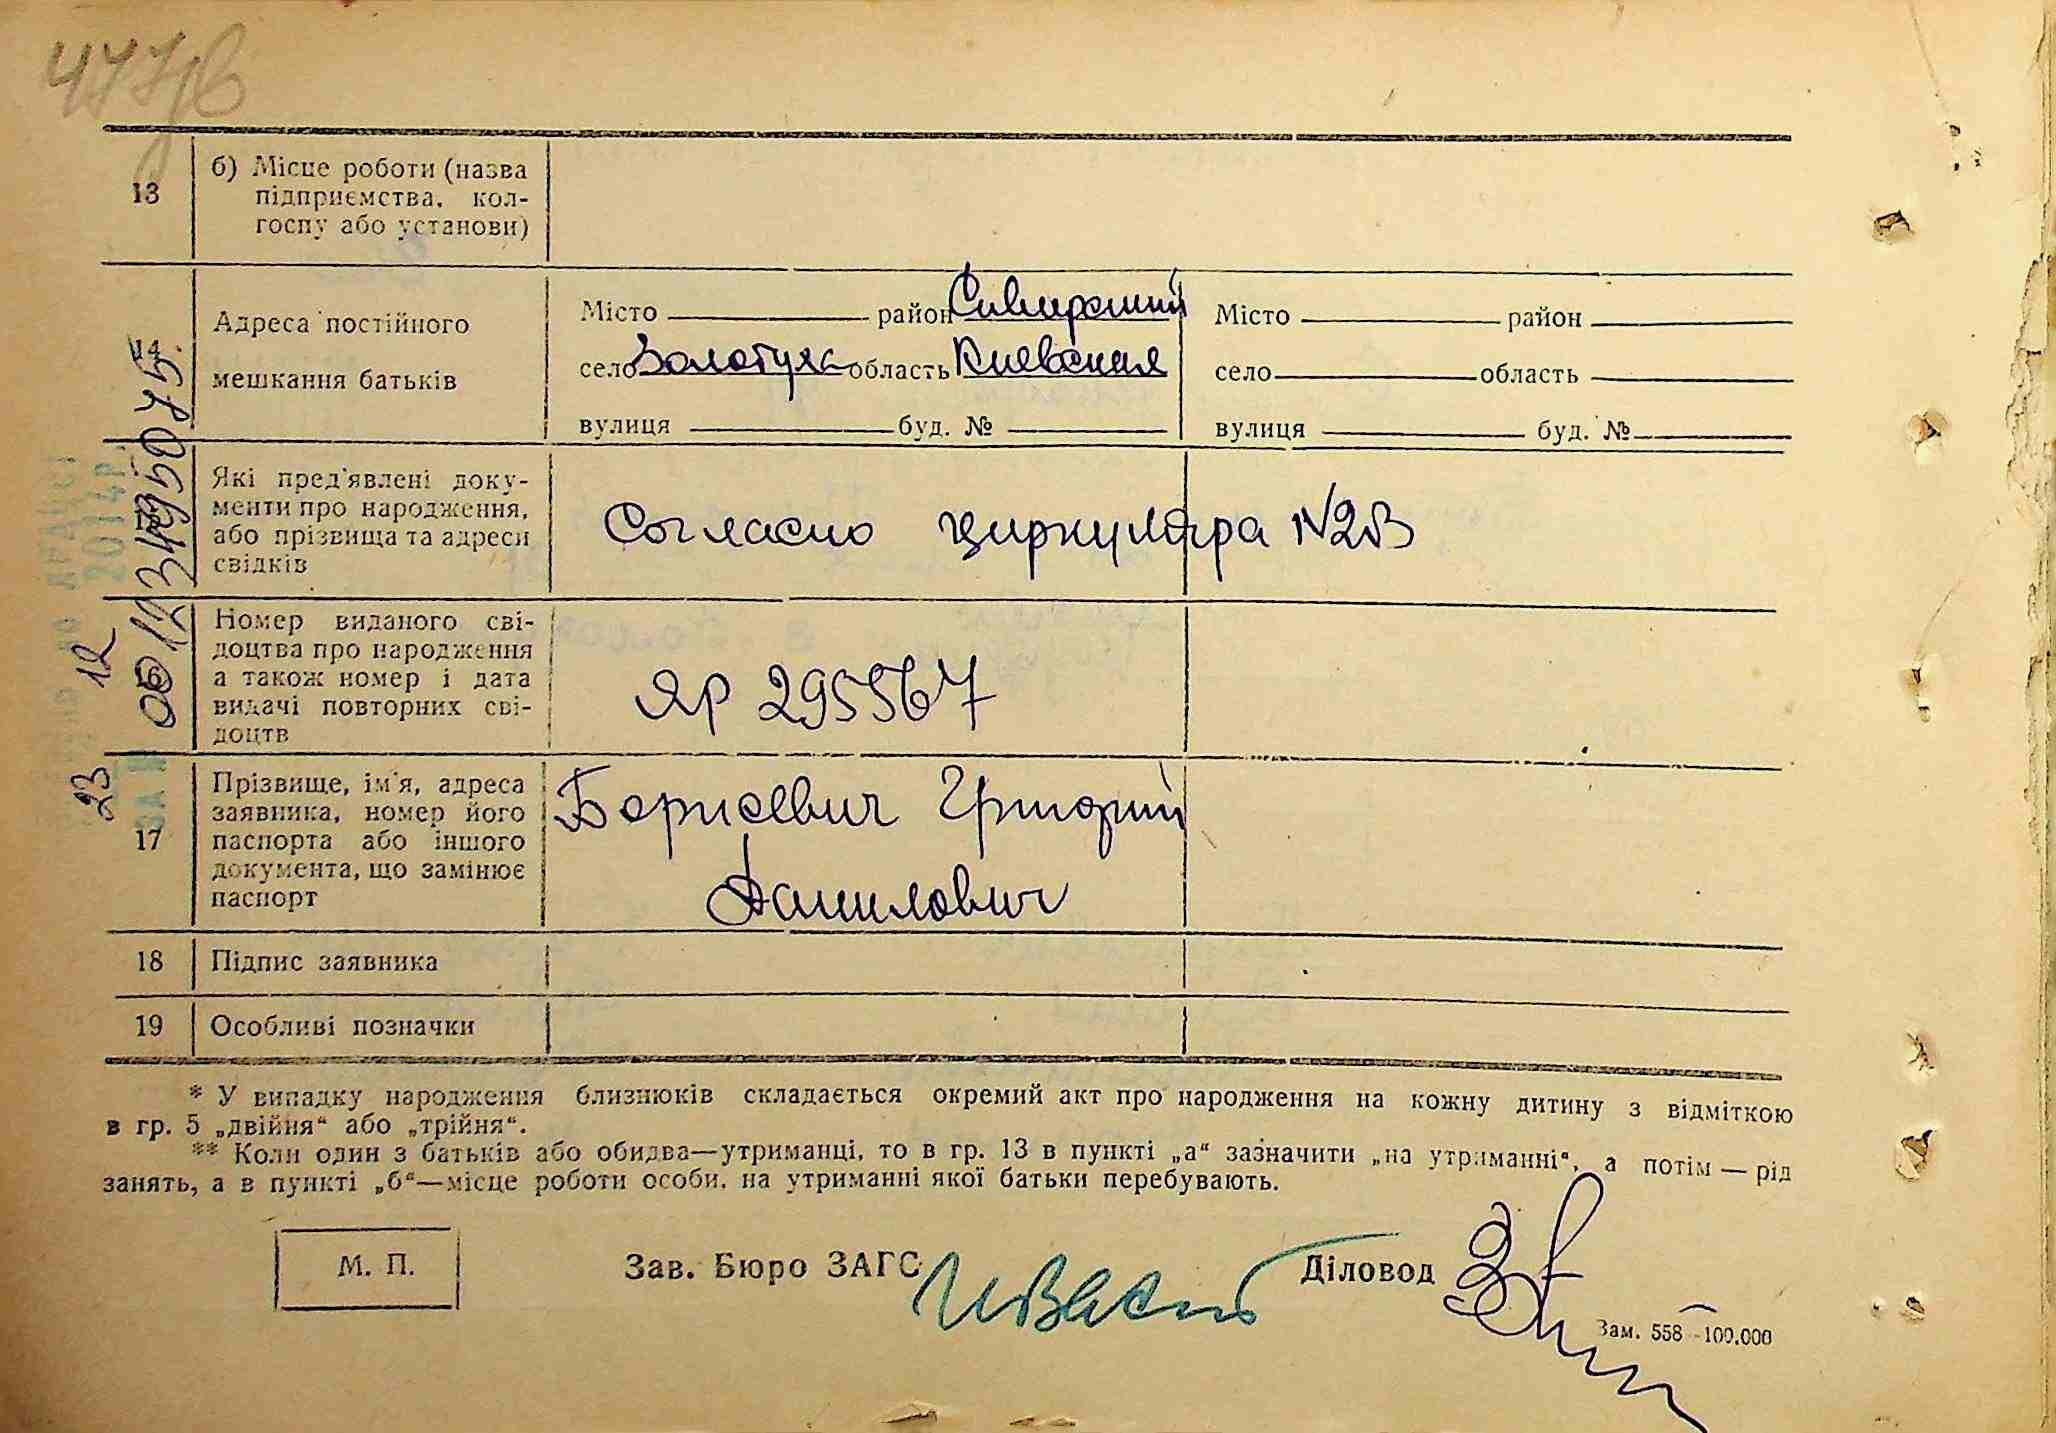 477/в
13
б) Місце роботи (назва
підприємства, кол-
госпу або установи)
14
Адреса постійного
мешкання батьків
Місто район Сивирский
село Золотуха область Киевская
вулиця буд. №
Місто район
село область
вулиця буд. №
Які пред'явлені доку-
менти про народження,
або прізвища та адреси
свідків
Согласно циркуляра №2В
16
Номер виданого сві-
доцтва про народження
а також номер і дата
видачі повторних сві-
доцтв
ЯР 295567
17
Прізвище, ім'я, адреса
заявника, номер його
паспорта або іншого
документа, що замінює
паспорт
Борисевич Григорий
Данилович
18
Підпис заявника
19
Особливі позначки
23 12
2014р.
* У випадку народження близнюків складається окремий акт про народження на кожну дитину з відміткою
в гр. 5 „двійня“ або „трійня“.
** Коли один з батьків або обидва—утриманці, то в гр. 13 в пункті „а“ зазначити „на утриманні“, а потім — рід
занять, а в пункті „б“—місце роботи особи, на утриманні якої батьки перебувають.
М. П.
Зав. Бюро ЗАГС
Діловод
Зам. 558—100.000